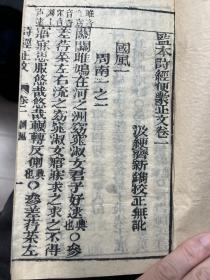 監本詩經便蒙正文卷一
汲綆齋新鐫校正無訛
國風一
周南一之一
關關雎鳩在河之洲窈窕淑女君子好逑興也○參
差荇菜左右流之窈窕淑女寤寐求之求之不得
寤寐思服悠哉悠哉輾轉反側興也○參差荇菜左
詩經正文